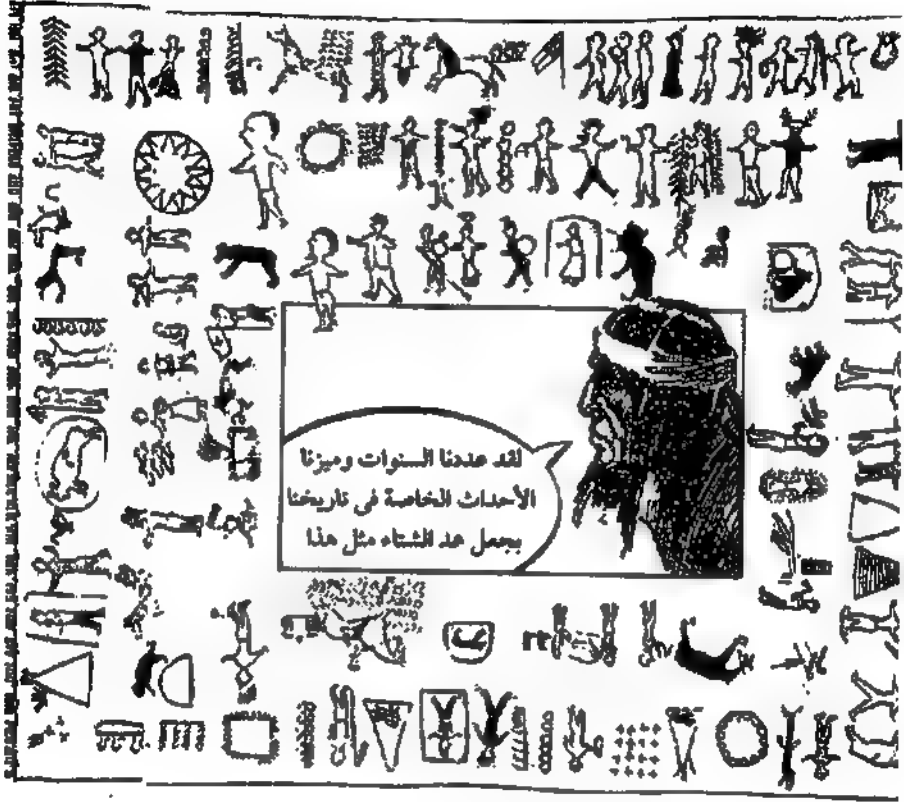 لقد عددنا السنوات وميزنا
الأحداث الخاصة في تاريخنا
بجعل عد الشتاء مثل هذا